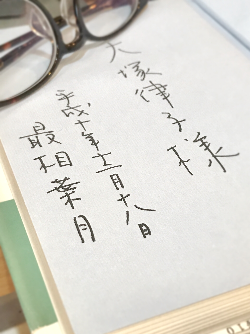 大塚律子様
平成十年十二月十八日
最相葉月